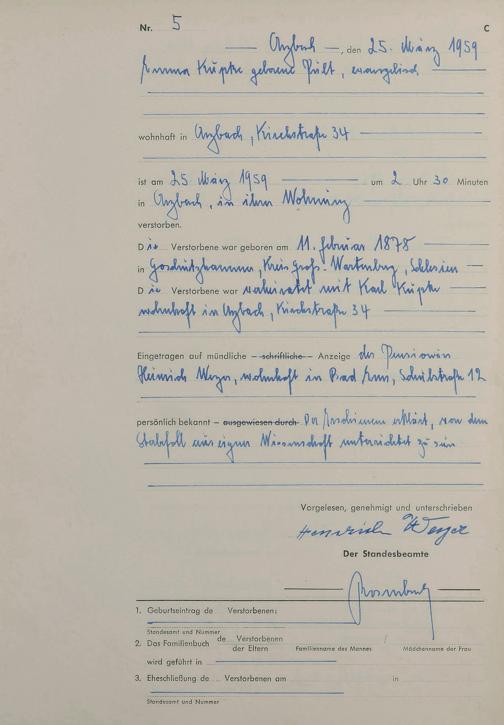 Nr. 5 C
Arzbach, den 25. März 1959
Emma Kupke geborene Pult, evangelisch
wohnhaft in Arzbach, Kirchstraße 34
ist am 25. März 1959 um 2 Uhr 30 Minuten
in Arzbach, in ihrer Wohnung
verstorben.
Die Verstorbene war geboren am 11. Februar 1878
in Goschützhammer, Kreis Groß-Wartenberg, Schlesien
Die Verstorbene war verheiratet mit Karl Kupke
wohnhaft in Arzbach, Kirchstraße 34
Eingetragen auf mündliche – schriftliche – Anzeige des
Heinrich Weyer, wohnhaft in Bad Ems, Schulstraße 12
persönlich bekannt – ausgewiesen durch Der Erschienene erklärt, von dem
Sterbfall aus eigner Wissenschaft unterrichtet zu sein
Vorgelesen, genehmigt und unterschrieben
Heinrich Weyer
Der Standesbeamte
1. Geburtseintrag de Verstorbenen:
Standesamt und Nummer
2. Das Familienbuch de Verstorbenen / der Eltern
Familienname des Mannes Mädchenname der Frau
wird geführt in
3. Eheschließung de Verstorbenen am in
Standesamt und Nummer